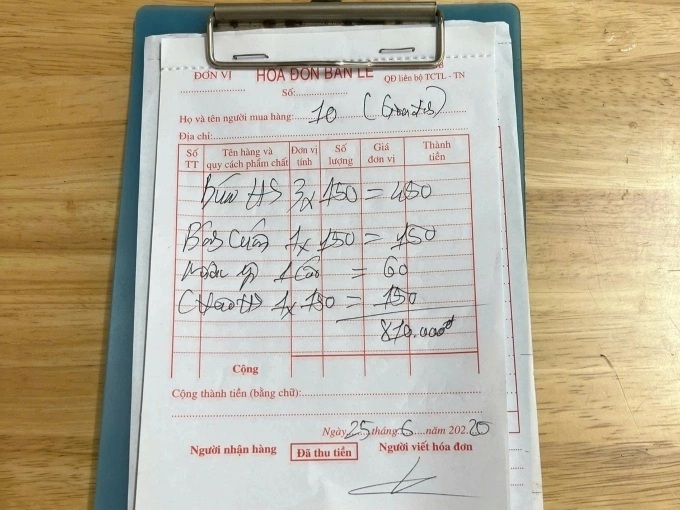 ĐƠN VỊ HÓA ĐƠN BÁN LẺ
QĐ liên bộ TCTL - TN
Số:
Họ và tên người mua hàng: 10
Địa chỉ:
Số TT Tên hàng và quy cách phẩm chất Đơn vị tính Số lượng Giá đơn vị Thành tiền
Bún HS 3 x 150 = 450
Bánh Cuốn 1 x 150 = 150
= 60
Cháo HS 1 x 150 = 150
810.000đ
Cộng
Cộng thành tiền (bằng chữ):
Ngày 25 tháng 6 năm 2020
Người nhận hàng Đã thu tiền Người viết hóa đơn